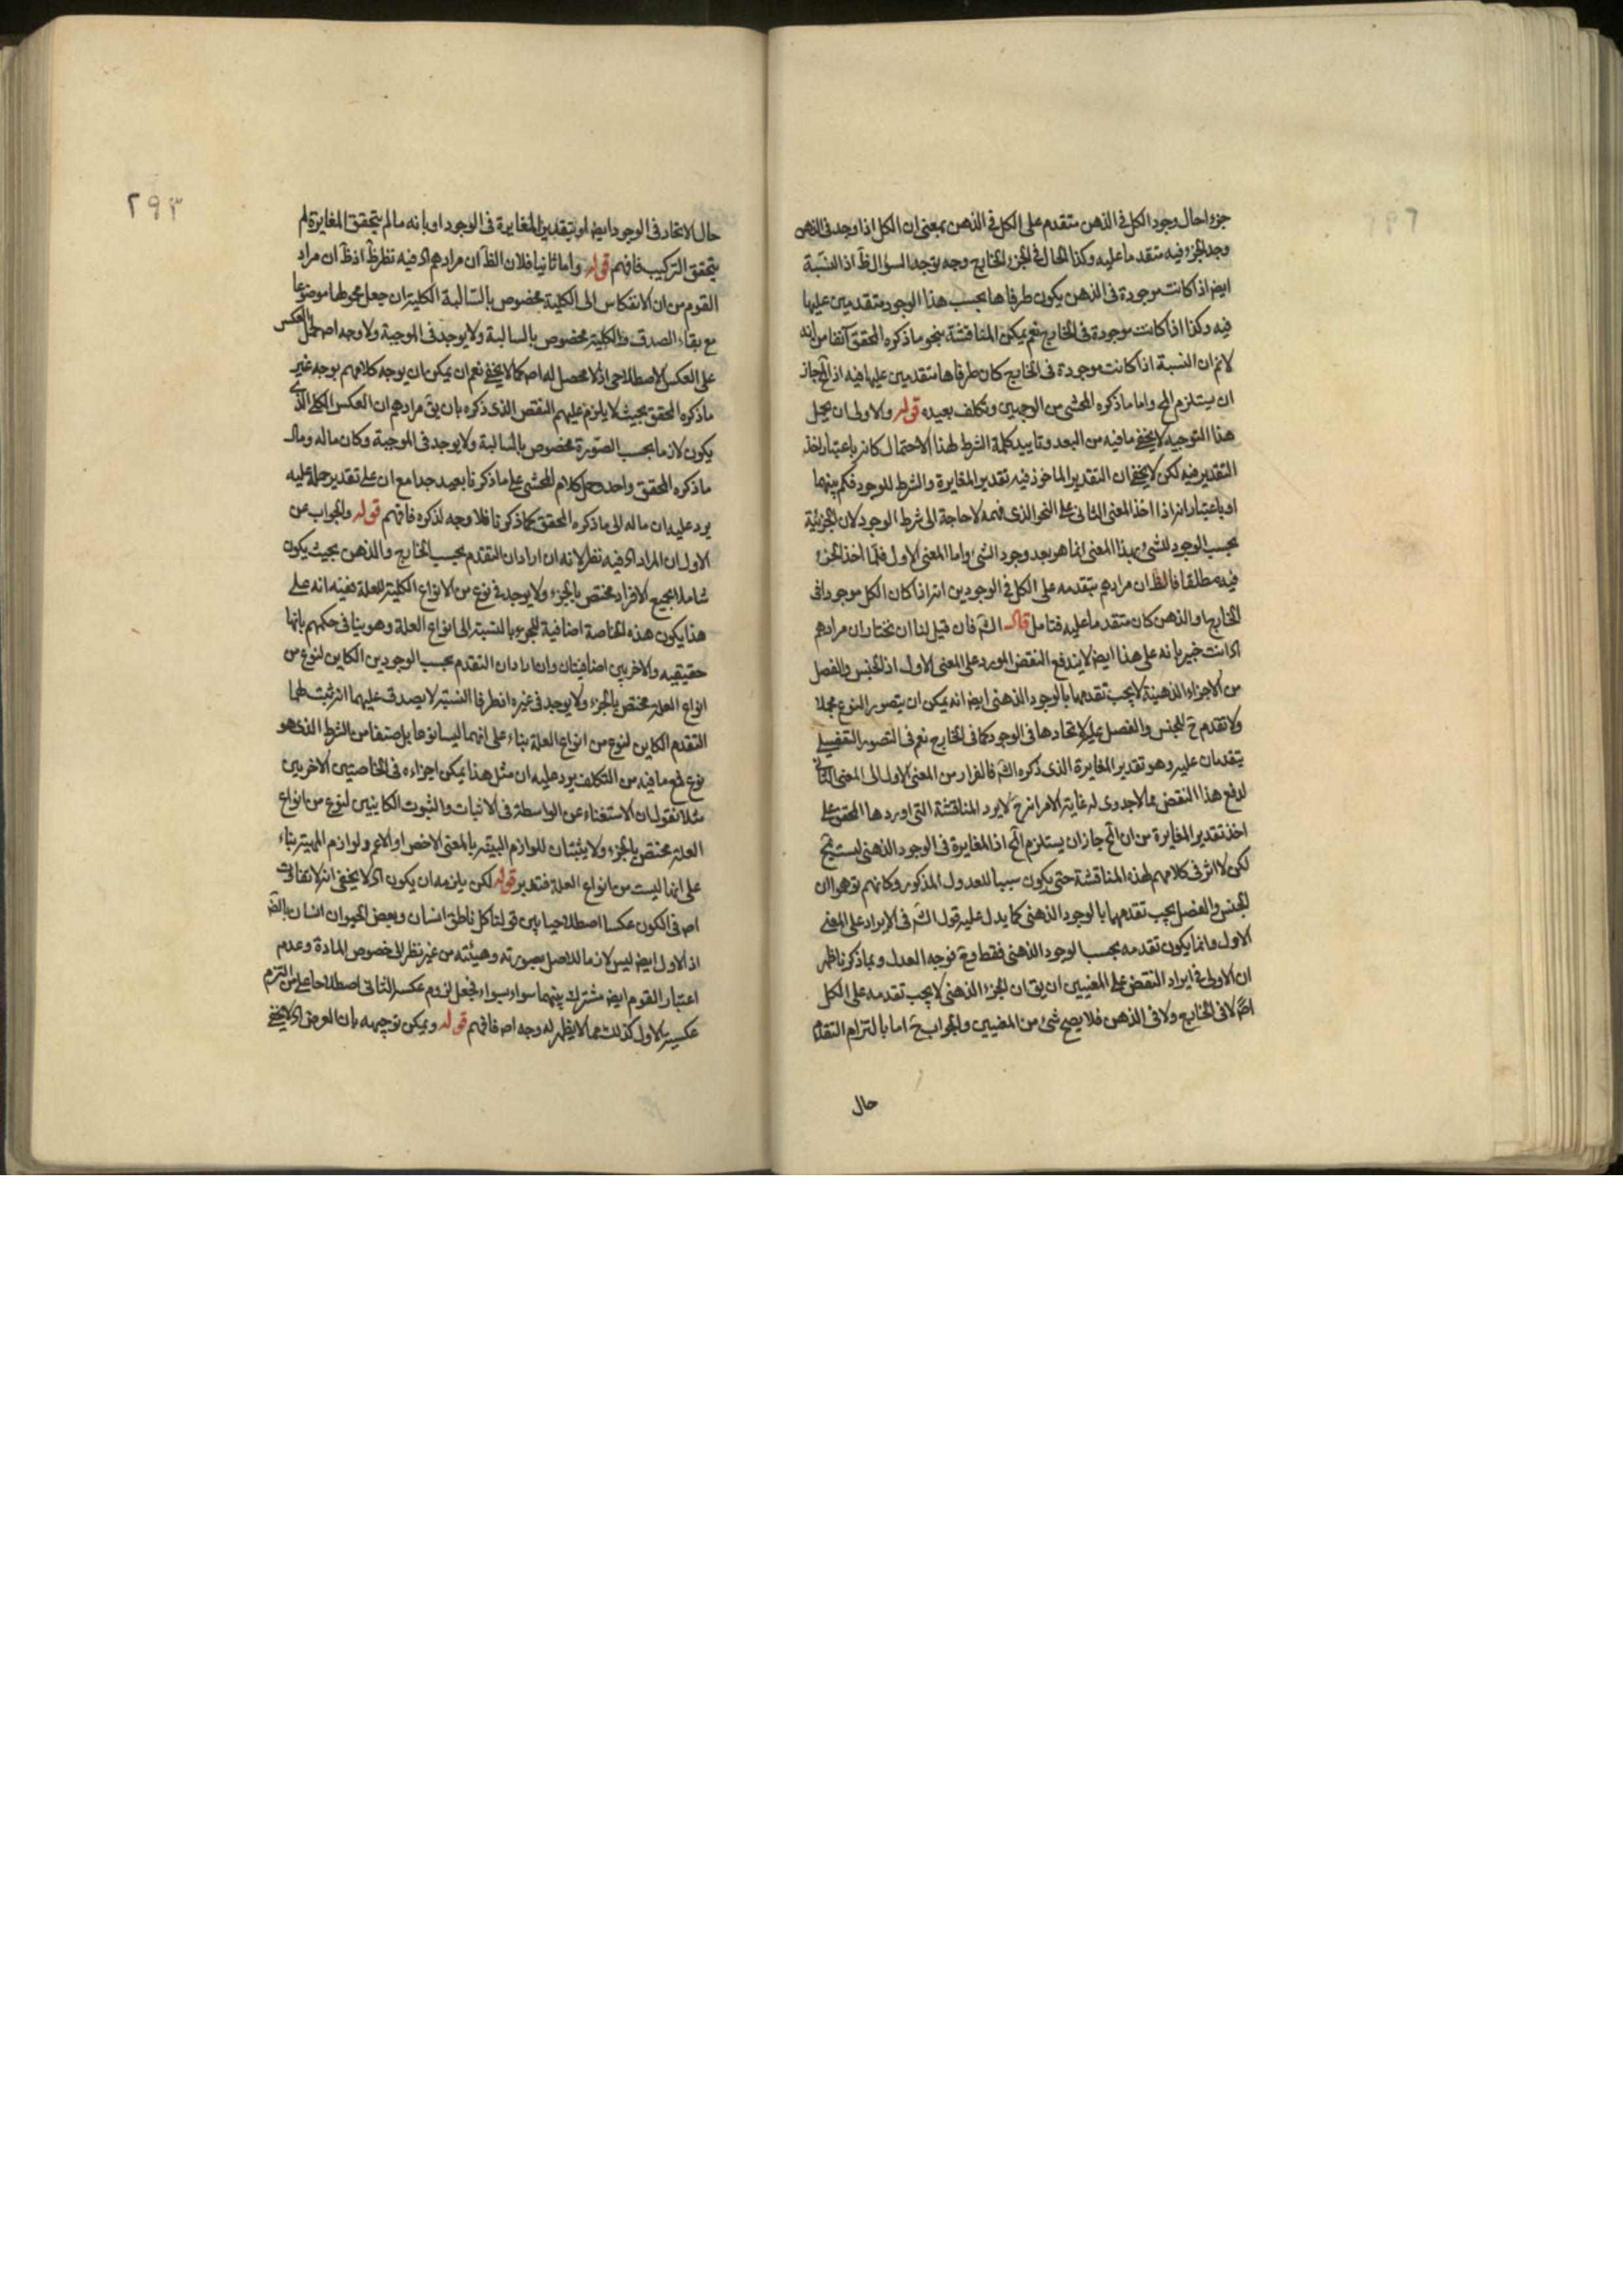 جزء حال وجود الكل في الذهن متقدم على الكل في الذهن بمعنى ان الكل اذا وجد في الذهن
وجد الجزء فيه متقدما عليه وكذا الحال في الجزء الخارجي وجه توجه السؤال ظ اذ النسبة
ايض اذا كانت موجودة في الذهن يكون طرفاها بحسب هذا الوجود متقدمين عليها
فيه وكذا اذا كانت موجودة في الخارج نعم يمكن المناقشة بنحو ما ذكره المحقق آنفا من انه
لانم ان النسبة اذا كانت موجودة في الخارج كان طرفاها متقدمين عليها فيه اذ المح جاز
ان يستلزم المح واما ما ذكره المحشي من الوجهين وتكلف بعيده قوله والاولى ان يحمل
هذا التوجيه لا يخفى ما فيه من البعد وتاييد كلمة الشرط لهذا الاحتمال كانه باعتبار اخذ
التقدير فيه لكن لا يخفى ان التقدير الماخوذ فيه تقدير المغايرة والشرط للوجود فكم بينهما
او باعتبار انه اذا اخذ المعنى الثاني على النحو الذي فهمه لا حاجة الى شرط الوجود لان الجزئية
بحسب الوجود للشيء بهذا المعنى انما هو بعد وجود الشيء واما المعنى الاول فلما اخذ الجزء
فيه مطلقا فالظ ان مرادهم بتقدمه على الكل في الوجودين انه اذا كان الكل موجودا في
الخارج او الذهن كان متقدما عليه فتامل قال الش فان قيل لنا ان نختار ان مرادهم
اه انت خبير بانه على هذا ايض لا يندفع النقض المورد على المعنى الاول اذ الجنس والفصل
من الاجزاء الذهنية لا يجب تقدمها بالوجود الذهني ايض انه يمكن ان يتصور النوع مجملا
ولا تقدم ح للجنس والفصل عليه لاتحادها في الوجود كما في الخارج نعم في التصور التفصيلي
يتقدمان عليه وهو تقدير المغايرة الذي ذكره الش فالفرار من المعنى الاول الى المعنى الثاني
لدفع هذا النقض مما لا جدوى له غاية الامر انه ح لا يرد المناقشة التي اوردها المحقق على
اخذ تقدير المغايرة من ان المح جاز ان يستلزم المح اذ المغايرة في الوجود الذهني ليست بمح
لكن لا اثر في كلامهم لهذه المناقشة حتى يكون سببا للعدول المذكور وكانهم توهموا ان
الجنس والفصل يجب تقدمهما بالوجود الذهني كما يدل عليه قول الش في الايراد على المعنى
الاول وانما يكون تقدمه بحسب الوجود الذهني فقط وح فوجه العدل وبما ذكرنا ظهر
ان الاولى في ايراد النقض على المعنيين ان يق ان الجزء الذهني لا يجب تقدمه على الكل
اصلا لا في الخارج ولا في الذهن فلا يصح شيء من المعنيين والجواب ح اما بالتزام التقدم
حال
٢٩٣
حال الاتحاد في الوجود ايض او بتقدير المغايرة في الوجود او بانه ما لم يتحقق المغايرة لم
يتحقق التركيب فافهم قوله واما ثانيا فلان الظ ان مرادهم اه فيه نظر ظ اذ ظ ان مراد
القوم من ان الانعكاس الى الكلية مخصوص بالسالبة الكلية ان جعل محمولها موضوعا
مع بقاء الصدق والكلية مخصوص بالسالبة ولا يوجد في الموجبة ولا وجه اصلا لحمل العكس
على العكس الاصطلاحي اذ لا محصل له اصلا كما لا يخفى نعم ان يمكن ان يوجه كلامهم بوجه غير
ما ذكره المحقق بحيث لا يلزم عليهم النقض الذي ذكره بان يق مرادهم ان العكس الكلي الذي
يكون لازما بحسب الصورة مخصوص بالسالبة ولا يوجد في الموجبة وكان ماله ومال
ما ذكره المحقق واحد وحمل كلام المحشي على ما ذكرنا بعيد جدا مع ان على تقدير حمله عليه
يرد عليه ان ماله الى ما ذكره المحقق كما ذكرنا فلا وجه لذكره فافهم قوله والجواب عن
الاول ان المراد اه فيه نظر لانه ان اراد ان التقدم بحسب الخارج والذهن بحيث يكون
شاملا لجميع الافراد مختص بالجزء ولا يوجد في نوع من الانواع الكلية للعلة ففيه انه على
هذا يكون هذه الخاصة اضافية للجزء بالنسبة الى انواع العلة وهو ينافي حكمهم بانها
حقيقيه والاخريين اضافيتان وان اراد ان التقدم بحسب الوجودين الكاين لنوع من
انواع العلة مختص بالجزء ولا يوجد في غيره اذ طرفا النسبة لا يصدق عليهما انه ثبت لهما
التقدم الكاين لنوع من انواع العلة بناء على انهما ليسا نوعا بل صنفا من الشرط الذي هو
نوع فمع ما فيه من التكلف يرد عليه ان مثل هذا يمكن اجزاءه في الخاصتين الاخريين
مثلا نقول ان الاستغناء عن الواسطة في الاثبات والثبوت الكاينين لنوع من انواع
العلة مختص بالجزء ولا يثبتان للوازم البينة بالمعنى الاخص او الاعم ولوازم المهية بناء
على انها ليست من انواع العلة فتدبر قوله لكن يلزمه ان يكون اه لا يخفى انه لا تفاوت
اصلا في الكون عكسا اصطلاحيا بين قولنا كل ناطق انسان وبعض الحيوان انسان بالضـ
اذ الاول ايض ليس لازما للاصل بصورته وهيئته من غير نظر الى خصوص المادة وعدم
اعتبار القوم ايض مشترك بينهما سواء بسواء فجعل لزوم عكسية الثاني اصطلاحا على من التزم
عكسية الاول كذلك مما لا يظهر له وجه اصلا فافهم قوله ويمكن توجيهه بان الغرض اه لا يخفى